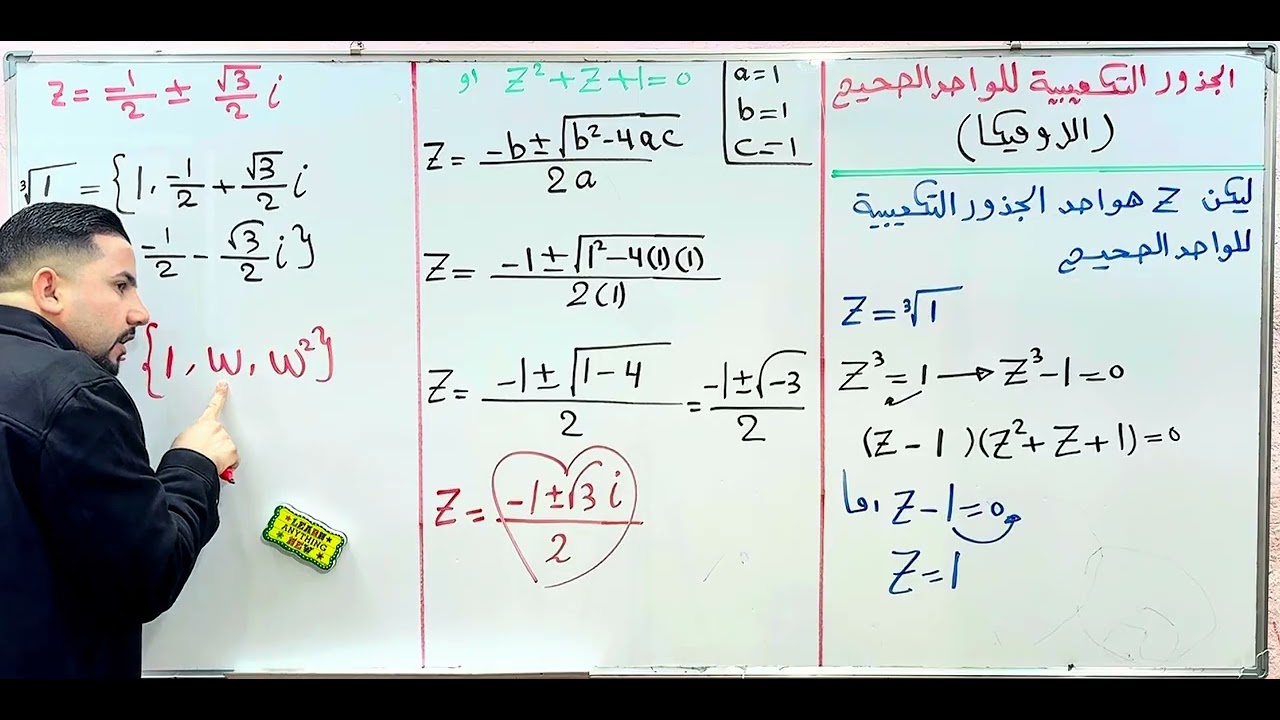 الجذور التكعيبية للواحد الصحيح
(الاوميكا)
ليكن Z هو احد الجذور التكعيبية
للواحد الصحيح
Z = ∛1
Z³ = 1 → Z³ - 1 = 0
(Z - 1)(Z² + Z + 1) = 0
اما Z - 1 = 0
Z = 1
او Z² + Z + 1 = 0
a = 1
b = 1
c = 1
Z = (-b ± √(b² - 4ac)) / 2a
Z = (-1 ± √(1² - 4(1)(1))) / 2(1)
Z = (-1 ± √(1 - 4)) / 2 = (-1 ± √-3) / 2
Z = (-1 ± √3 i) / 2
Z = -1/2 ± √3/2 i
∛1 = {1, -1/2 + √3/2 i
-1/2 - √3/2 i}
{1, w, w²}
LEARN
ANYTHING
NEW